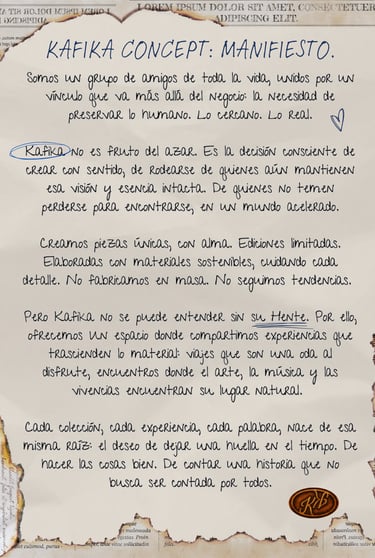 LOREM IPSUM DOLOR SIT AMET, CONSECTETUER
ADIPISCING ELIT.
KAFIKA CONCEPT: MANIFIESTO.
Somos un grupo de amigos de toda la vida, unidos por un
vínculo que va más allá del negocio: la necesidad de
preservar lo humano. Lo cercano. Lo real.
Kafika no es fruto del azar. Es la decisión consciente de
crear con sentido, de rodearse de quienes aún mantienen
esa visión y esencia intacta. De quienes no temen
perderse para encontrarse, en un mundo acelerado.
Creamos piezas únicas, con alma. Ediciones limitadas.
Elaboradas con materiales sostenibles, cuidando cada
detalle. No fabricamos en masa. No seguimos tendencias.
Pero Kafika no se puede entender sin su Hente. Por ello,
ofrecemos un espacio donde compartimos experiencias que
trascienden lo material: viajes que son una oda al
disfrute, encuentros donde el arte, la música y las
vivencias encuentran su lugar natural.
Cada colección, cada experiencia, cada palabra, nace de esa
misma raíz: el deseo de dejar una huella en el tiempo. De
hacer las cosas bien. De contar una historia que no
busca ser contada por todos.